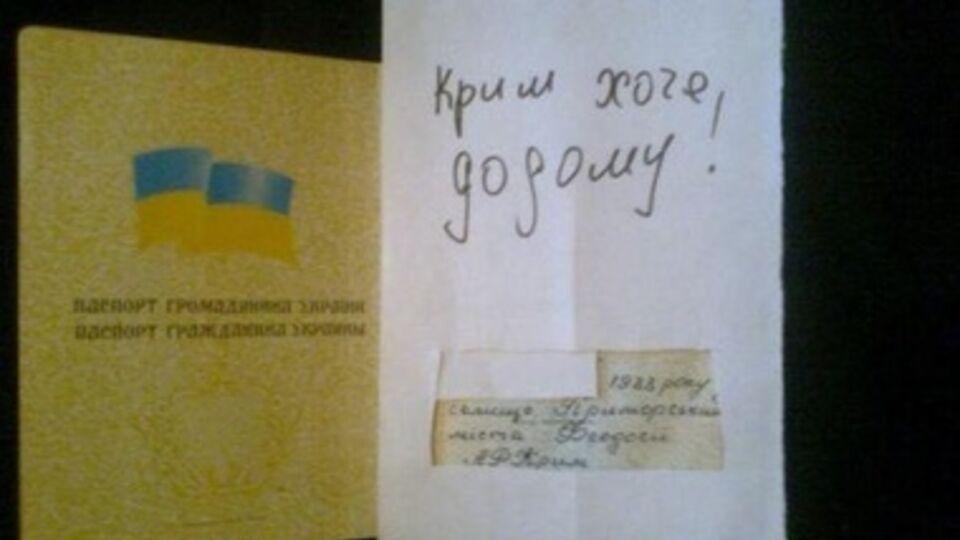 ПАСПОРТ ГРОМАДЯНИНА УКРАЇНИ
ПАСПОРТ ГРАЖДАНИНА УКРАИНЫ
Крим хоче
додому!
року,
селище Приморський
міста Феодосії
АР Крим